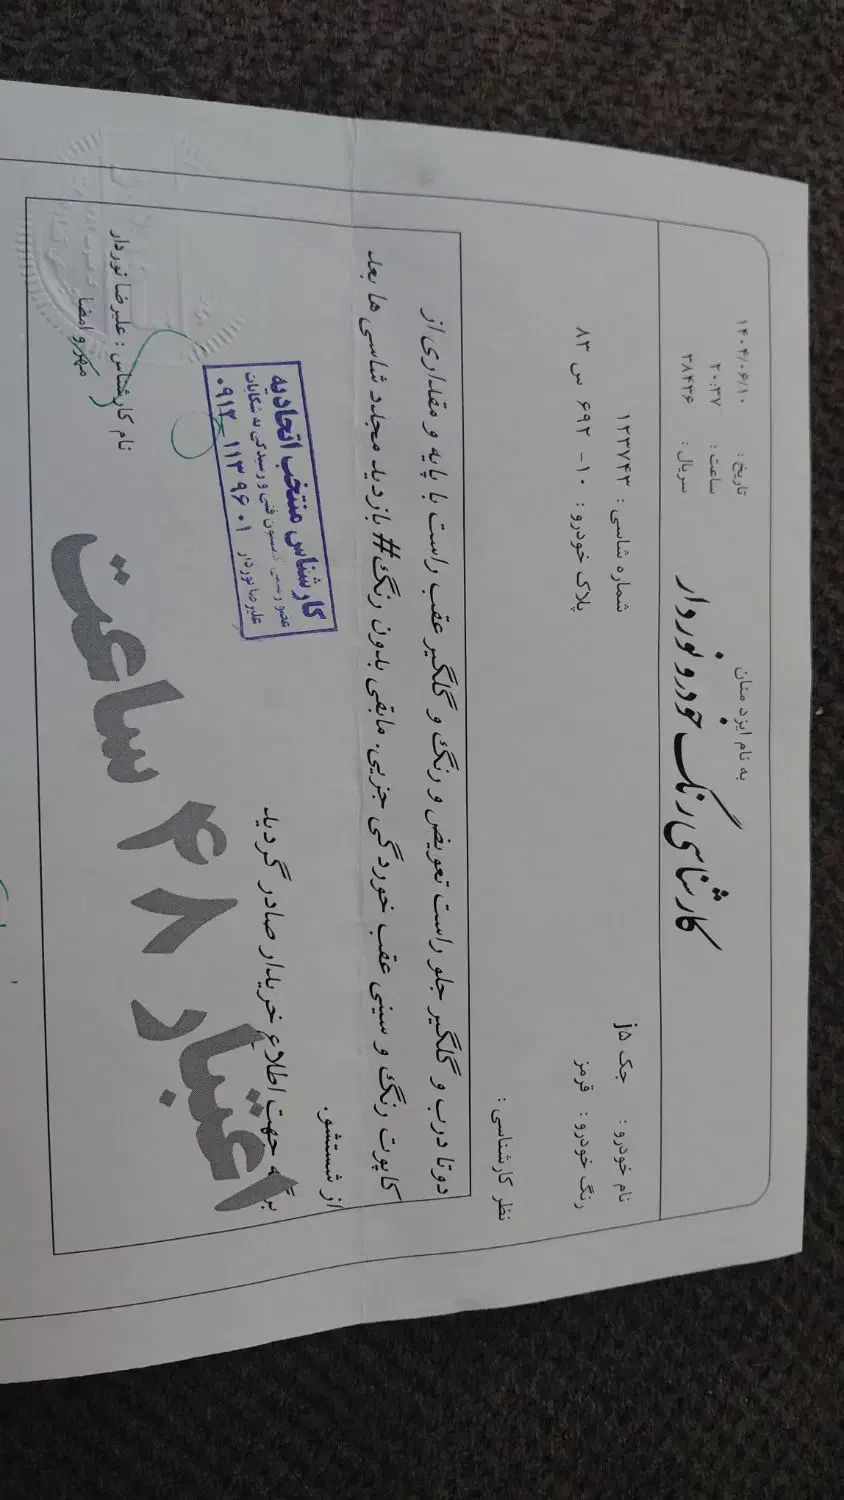 به نام ایزد منان
کارشناسی رنگ خودرو نوردار
تاریخ : ۱۴۰۴/۰۶/۱۰
ساعت : ۲۰:۳۷
سریال : ۳۸۴۳۶
نام خودرو : جک j۵
شماره شاسی : ۱۲۳۷۴۳
رنگ خودرو : قرمز
پلاک خودرو : ۱۰- ۶۹۲ س ۸۳
نظر کارشناسی :
دوتا درب و گلگیر جلو راست تعویض و رنگ و گلگیر عقب راست با پایه و مقداری از
کاپوت رنگ و سینی عقب خوردگی جزیی. مابقی بدون رنگ# بازدید مجدد شاسی ها بعد
از شستشو.
جهت اطلاع خریدار صادر گردید
اعتبار ۴۸ ساعت
کارشناس منتخب اتحادیه
فنی و رسیدگی به شکایات
علیرضا نوردار ۰۹۱۲ ۱۱۳ ۹۶۰۱
نام کارشناس : علیرضا نوردار
مهر و امضا